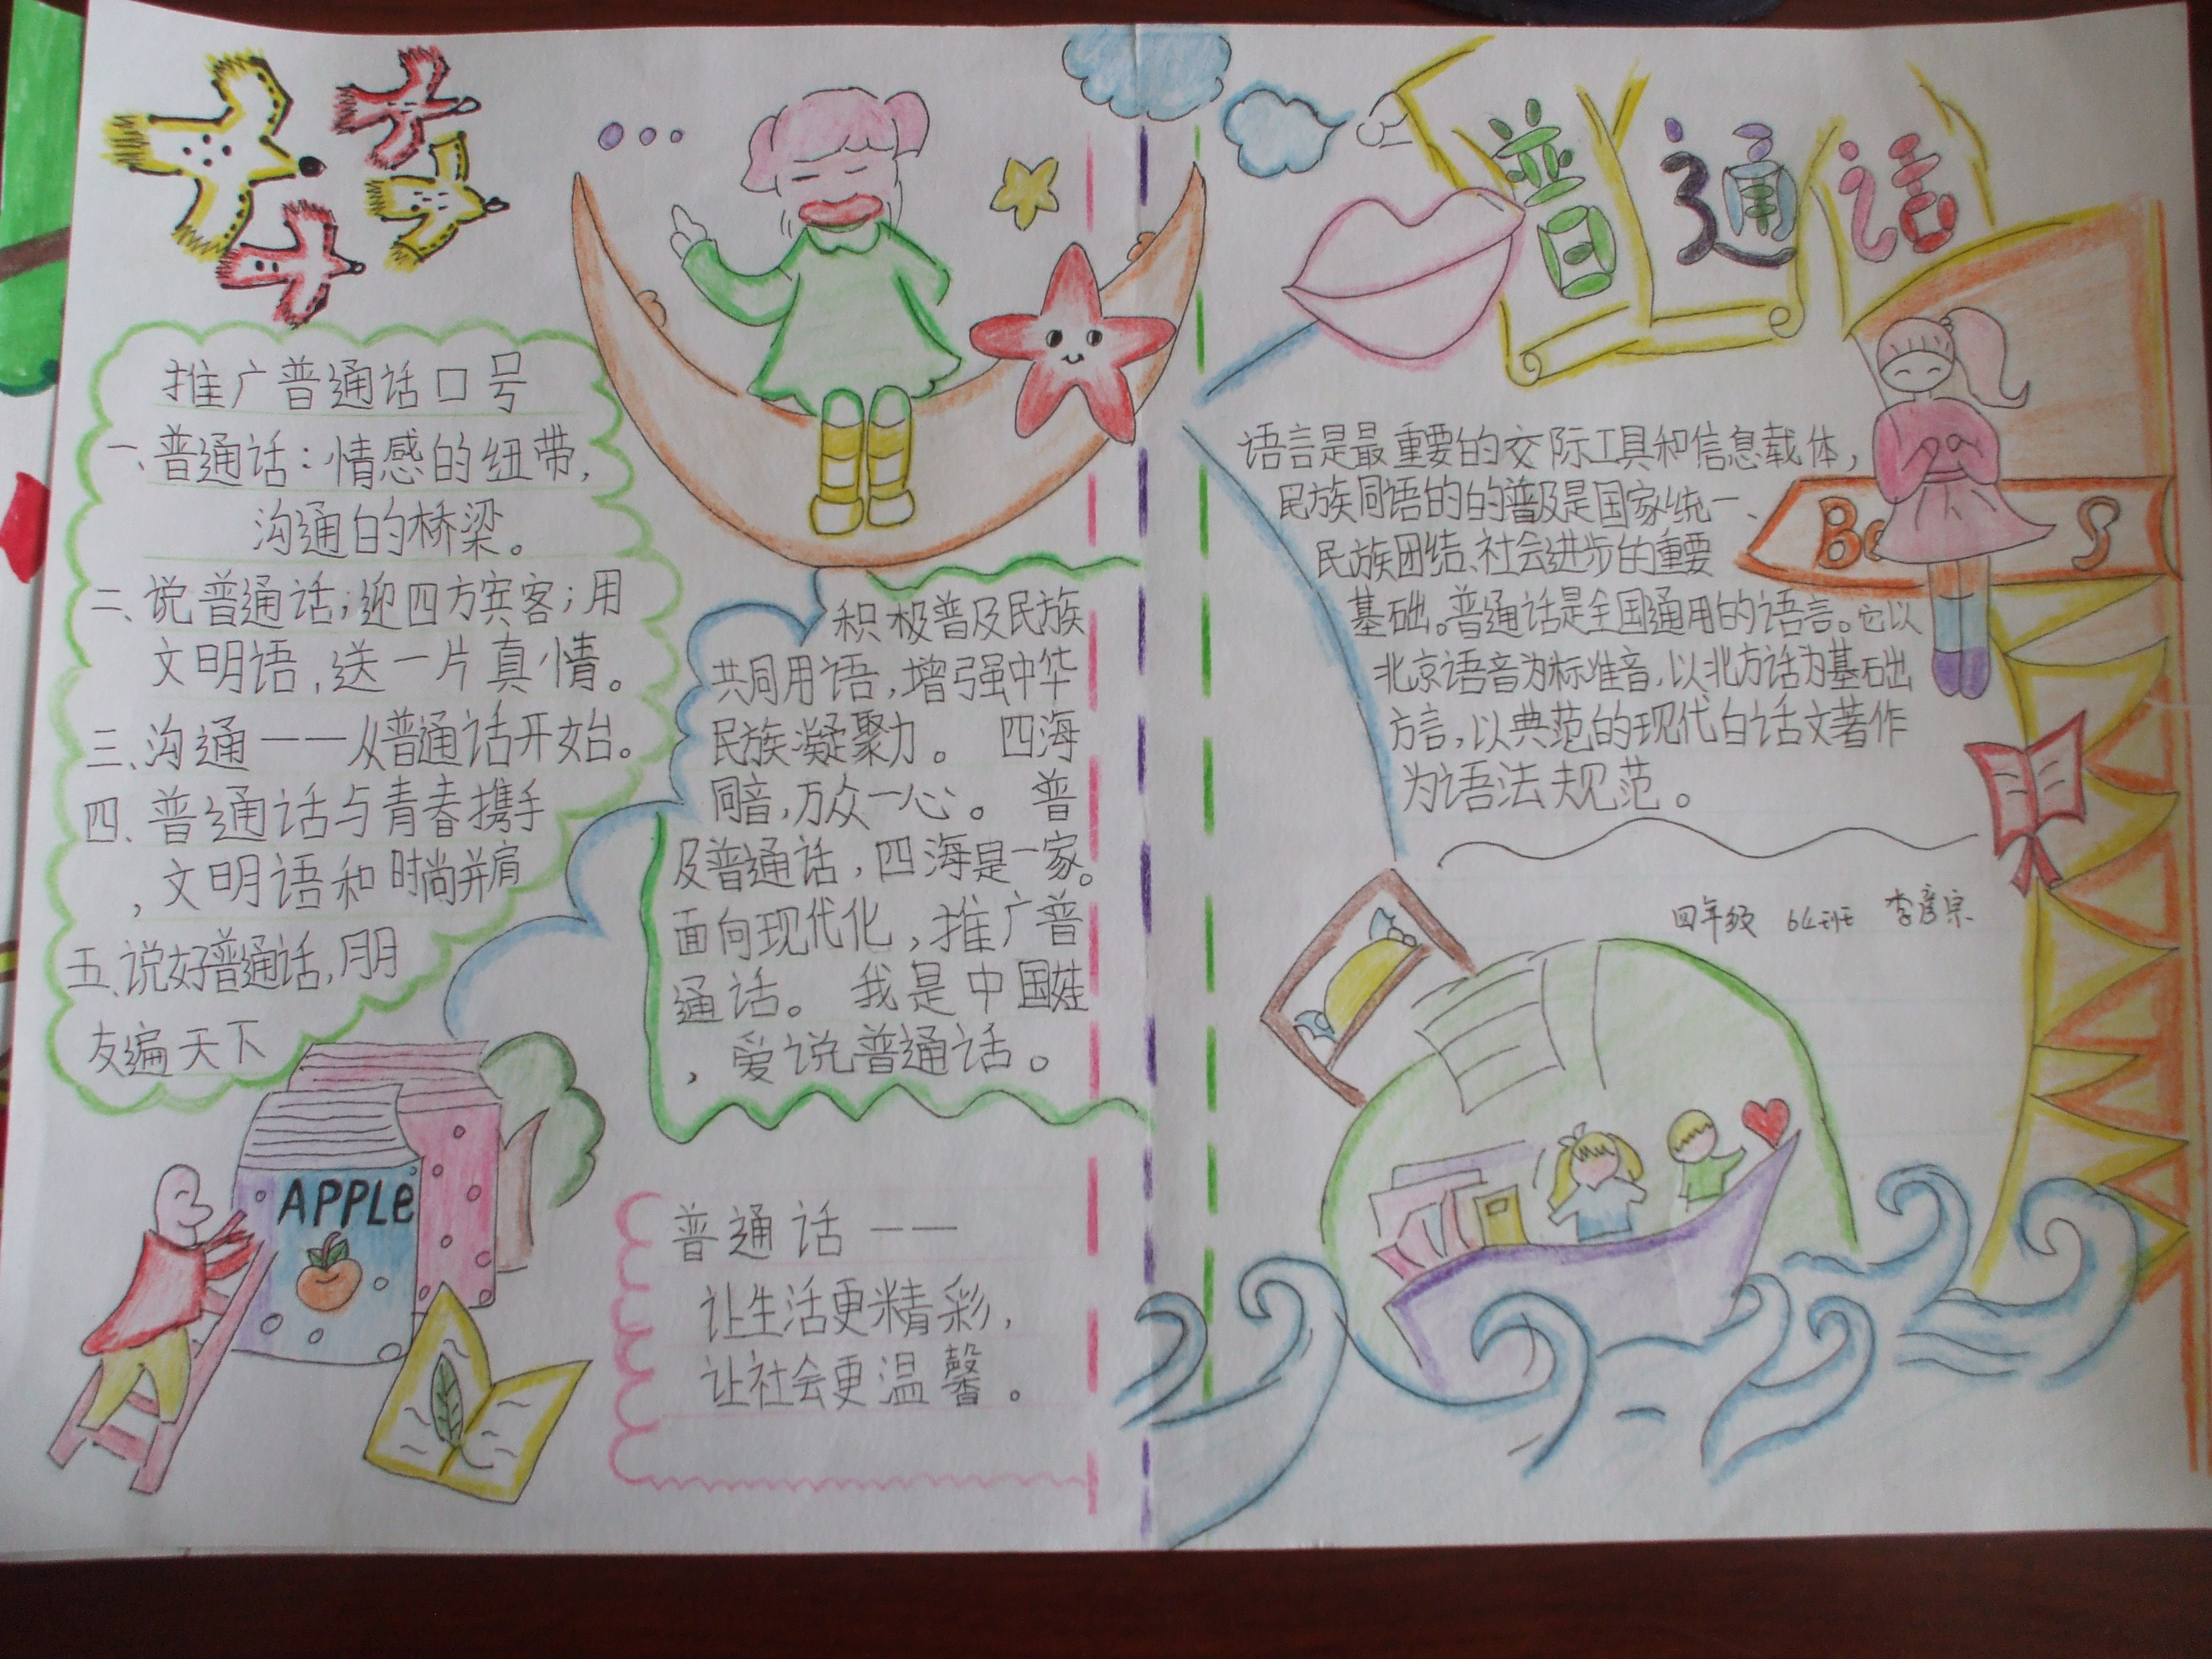 推广普通话口号
一、普通话：情感的纽带，
沟通的桥梁。
二、说普通话；迎四方宾客；用
文明语，送一片真情。
三、沟通——从普通话开始。
四、普通话与青春携手
，文明语和时尚并肩
五、说好普通话，朋
友遍天下
APPLe
积极普及民族
共同用语，增强中华
民族凝聚力。 四海
同音，万众一心。 普
及普通话，四海是一家。
面向现代化，推广普
通话。 我是中国娃
，爱说普通话。
普通话——
让生活更精彩，
让社会更温馨。
普通话
语言是最重要的交际工具和信息载体，
民族同语的的普及是国家统一、
民族团结、社会进步的重要
基础。普通话是全国通用的语言。它以
北京语音为标准音，以北方话为基础
方言，以典范的现代白话文著作
为语法规范。
四年级 64班 李彦